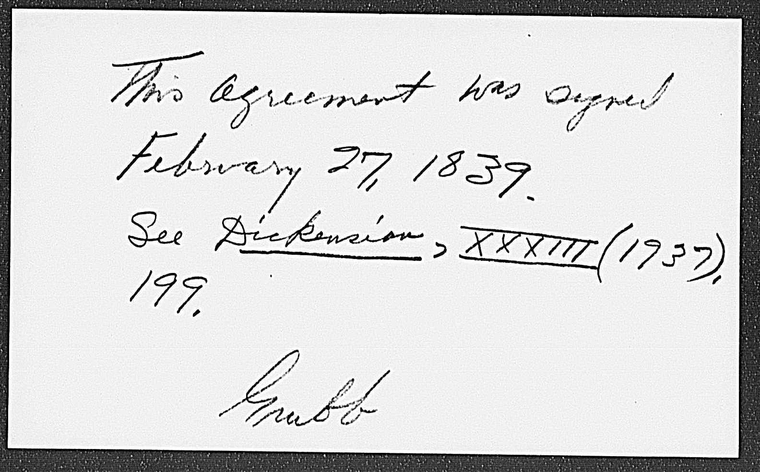 This agreement was signed
February 27, 1839.
See Dickensian, XXXIII (1937),
199.
Grubb